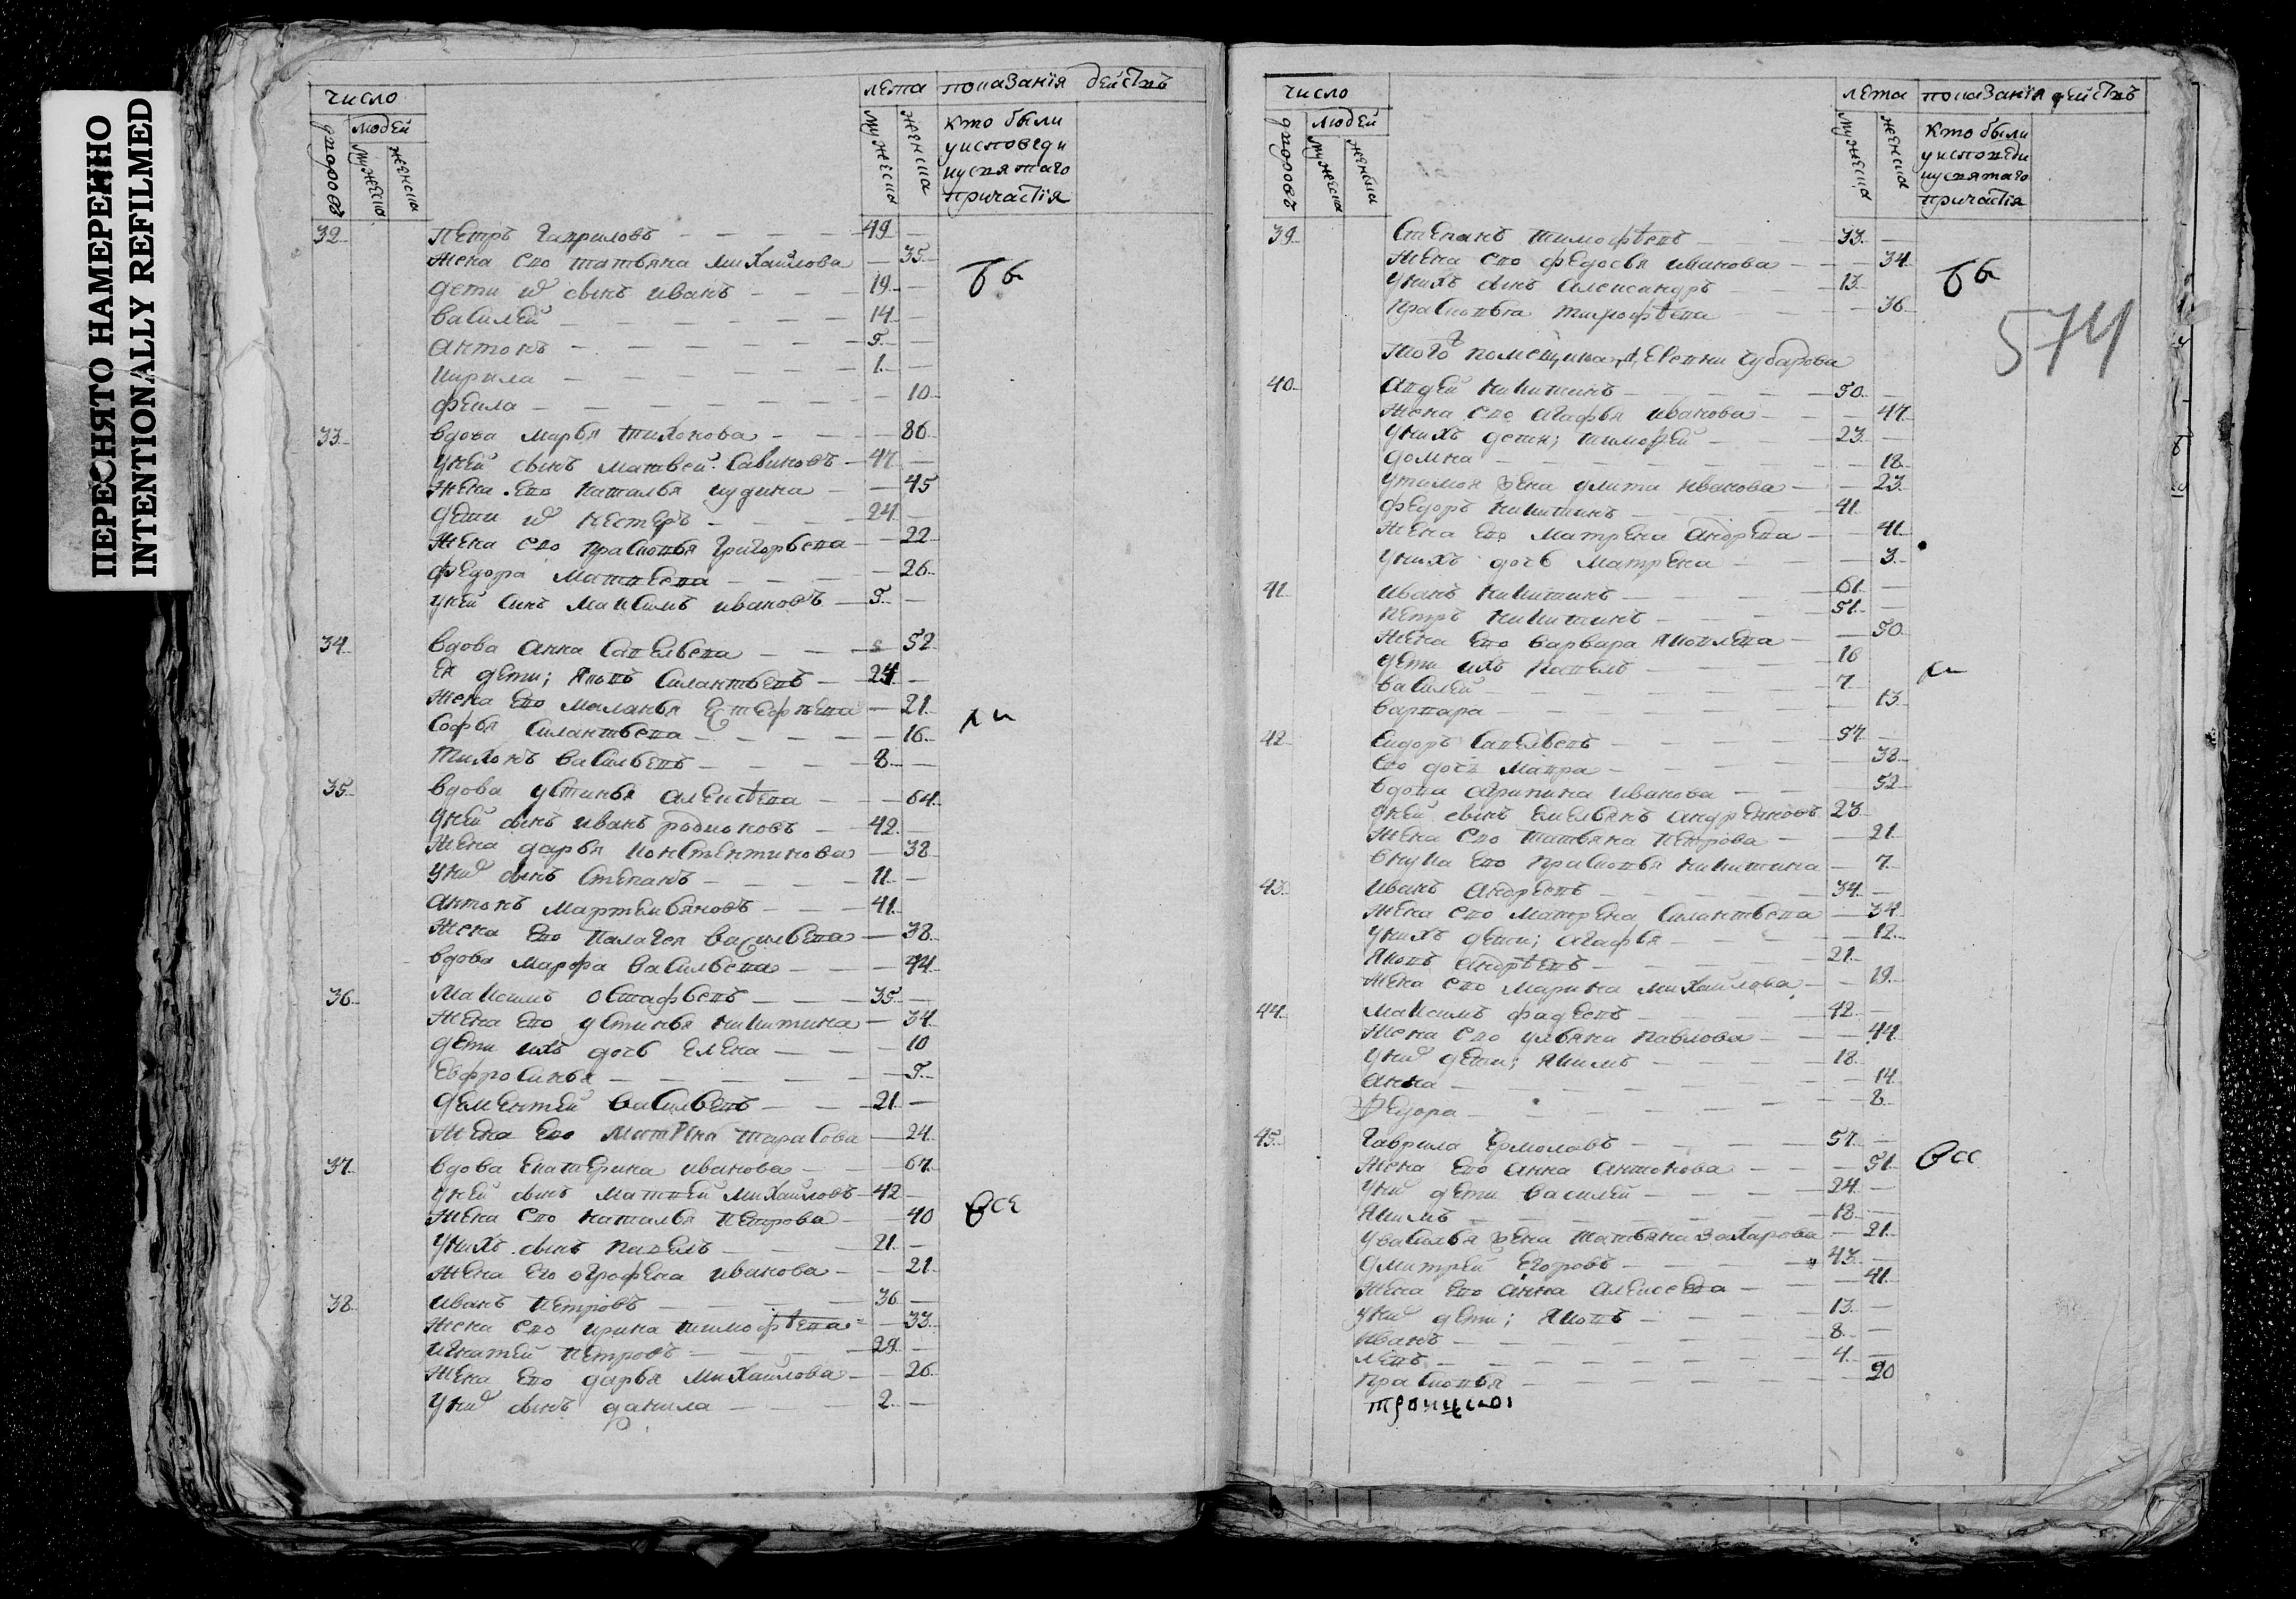 ПЕРЕСНЯТО НАМЕРЕННО
INTENTIONALLY REFILMED
число
лета показанїя действъ
дворовъ
людей
мужеска
женска
мужеска
женска
кто были
уисповеди
иусвятаго
причастїя
32 Петръ Гавриловъ 49
жена ево татьяна михайлова 35
дети ихъ сынъ иванъ 19
василей 14
антонъ 5
кирила 1
фекла 10
33 вдова марья тихонова 86
уней сынъ матвей савиновъ 47
жена ево наталья иудина 45
дети ихъ нестеръ 24
жена ево прасковья григорьева 22
федора матвеева 26
уней синъ максимъ ивановъ 5
34 вдова анна савельева 52
ея дети; яковъ силантьевъ 24
жена ево маланья естефеева 21
софья силантьева 16
тихонъ васильевъ 8
35 вдова устинья алексѣева 64
уней сынъ иванъ родионовъ 42
жена дарья констентинова 38
уних сынъ степанъ 11
антонъ мартемьяновъ 41
жена ево палагея васильева 38
вдова марфа васильева 44
36 максимъ остафьевъ 35
жена ево устинья никитина 34
дети ихъ дочь елена 10
евфросинья 5
дементей васильевъ 21
жена ево матрена тарасова 24
37 вдова екатерина иванова 67
уней сынъ матвей михайловъ 42
жена ево наталья петрова 40
все
унихъ сынъ павелъ 21
жена его огрофена иванова 21
38 иванъ петровъ 36
жена ево ирина тимофѣева 33
игнатей петровъ 29
жена ево дарья михайлова 26
уних сынъ данила 2
число
лета показанїя действъ
дворовъ
людей
мужеска
женска
мужеска
женска
кто были
уисповеди
иусвятаго
причастїя
39 степанъ тимофѣевъ 33
жена ево федосья иванова 34
унихъ сынъ александръ 13
прасковья тимофѣева 36
574
того помещика деревни чубарова
40 авдей никитинъ 50
жена ево агафья иванова 47
унихъ дети; тимофей 23
домна 18
утимоя жена улита иванова 23
федоръ никитинъ 41
жена ево матрена андреева 41
унихъ дочь матрена 3
41 иванъ никитинъ 61
петръ никитинъ 51
жена ево варвара яковлева 50
дети ихъ павелъ 16
василей 7
варвара 13
42 сидоръ савельевъ 57
ево дочь мавра 38
вдова агрипина иванова 52
уней сынъ емельянъ андреяновъ 23
жена ево татьяна петрова 21
внука ево прасковья никитина 7
43 иванъ андреевъ 34
жена ево матрена силантьева 34
унихъ дети; агафья 12
яковъ андрѣевъ 21
жена ево марина михайлова 19
44 максимъ фадеевъ 42
жена ево ульяна павлова 44
уних дети; якимъ 18
анна 14
федора 8
45 гаврила ермолавъ 57
жена ево анна антонова 51
все
уних дети василей 24
якимъ 18
увасилья жена татьяна захарова 21
дмитрей егоровъ 43
жена ево анна алексеева 41
уних дети; яковъ 13
иванъ 8
левъ 4
прасковья 20
троицкой